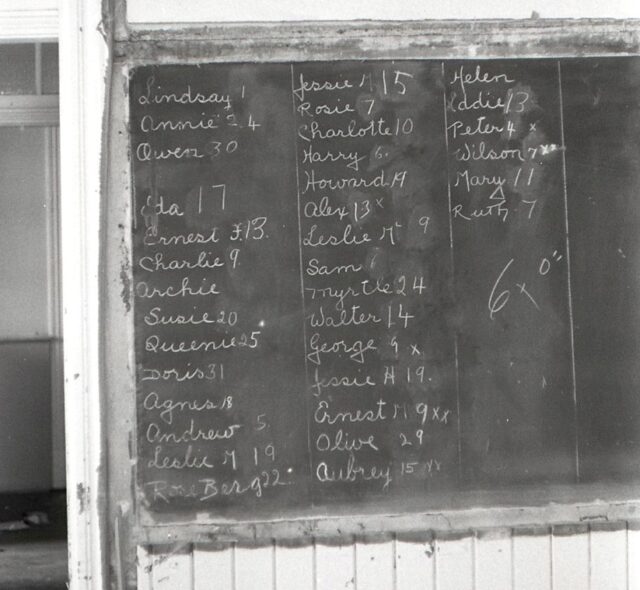 Lindsay 1
Annie 24
Owen 30
Ida 17
Ernest F. 13.
Charlie 9.
Archie
Susie 20
Queenie 25
Doris 31
Agnes 18
Andrew 5.
Leslie M 19
Rose Berg 22.
Jessie M 15
Rosie 7
Charlotte 10
Harry 6.
Howard 19
Alex 13 x
Leslie Mc 9
Sam
Myrtle 24
Walter 14
George 9 x
Jessie H 19.
Ernest M 9 xx
Olive 29
Aubrey 15 xx
Helen
Eddie 13
Peter 4 x
Wilson 7 xx
Mary 11
Ruth 7
6 x 0"